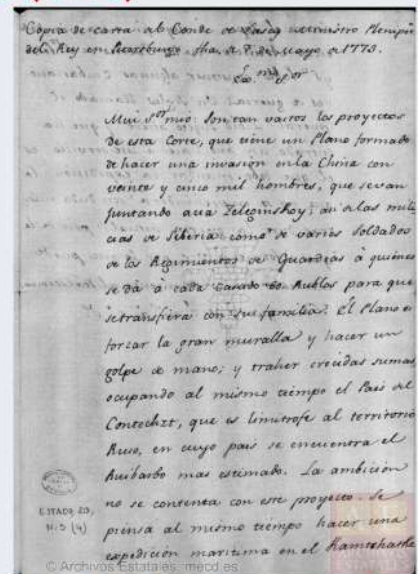 Copia de carta del Conde de Lascy Ministro Plenipo
del Rey en Petersburgo fha. a 7. de Mayo de 1773.
Exc.mo S.or
Mui S.or mio: Son tan vastos los proyectos
de esta Corte, que tiene un Plano formado
de hacer una invasion en la China con
veinte y cinco mil hombres, que se van
juntando acia Zeleginskoy; asi de las mili
cias de Siberia como de varios soldados
de los Regimientos de Guardias a quienes
se dà a cada Casado 60. Rublos para que
se transfiera con su familia. El Plano es
forzar la gran muralla y hacer un
golpe de mano; y traher crecidas sumas
ocupando al mismo tiempo el Pais del
Contechzt, que es limitrofe al territorio
Ruso, en cuyo pais se encuentra el
Ruibarbo mas estimado. La ambicion
no se contenta con este proyecto. Se
piensa al mismo tiempo hacer una
expedicion maritima en el Kamtchatka
ESTADO, 20,
N. 3 (4)
© Archivos Estatales, mecd.es